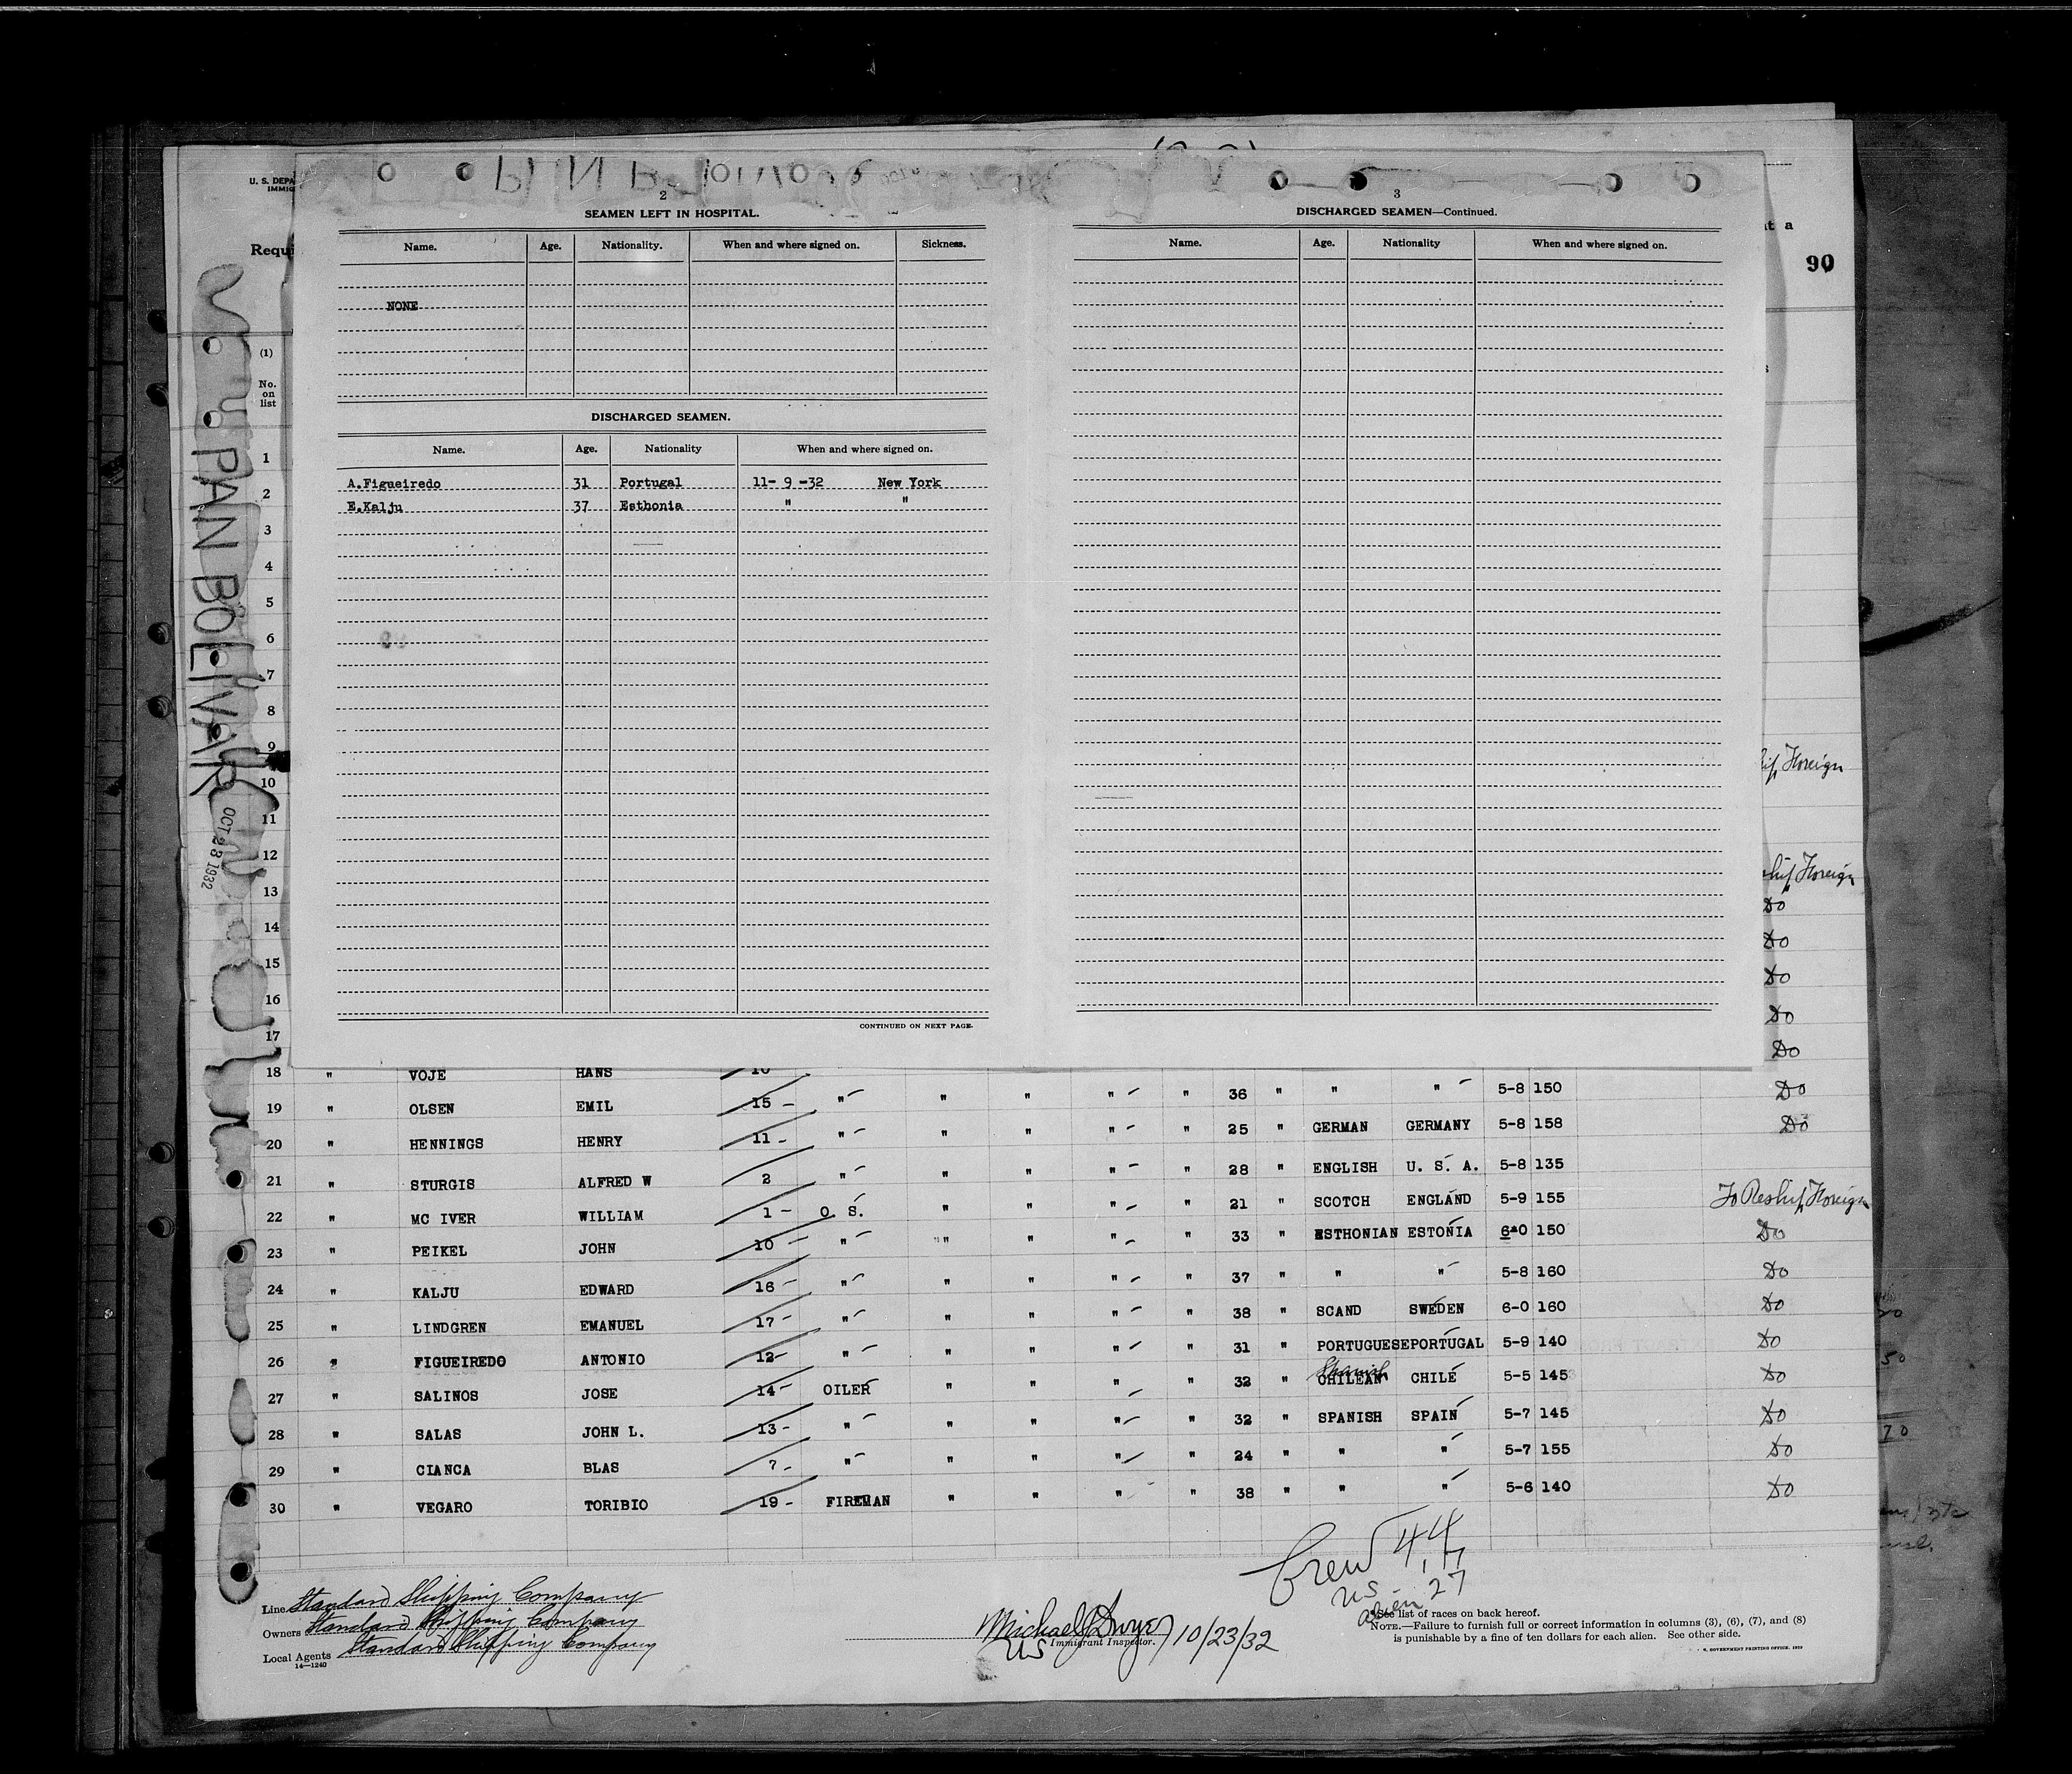 U. S. DEPA
IMMIG
Requi
at a
90
2
SEAMEN LEFT IN HOSPITAL.
Name. Age. Nationality. When and where signed on. Sickness.
NONE
DISCHARGED SEAMEN.
Name. Age. Nationality When and where signed on.
A.Figueiredo 31 Portugal 11- 9 -32 New York
E.Kalju 37 Esthonia " "
CONTINUED ON NEXT PAGE.
3
DISCHARGED SEAMEN—Continued.
Name. Age. Nationality When and where signed on.
PAN BOLIVAR
OCT 23 1932
(1)
No.
on
list
1
2
3
4
5
6
7
8
9
10
11
12
13
14
15
16
17
hip Foreign
ship Foreign
Do
Do
Do
Do
Do
18 " VOJE HANS 10
19 " OLSEN EMIL 15 - " " " " " 36 " " " 5-8 150 Do
20 " HENNINGS HENRY 11 - " " " " " 25 " GERMAN GERMANY 5-8 158 Do
21 " STURGIS ALFRED W 2 " " " " " 28 " ENGLISH U. S. A. 5-8 135
22 " MC IVER WILLIAM 1 - O. S. " " " " 21 " SCOTCH ENGLAND 5-9 155 To Reship Foreign
23 " PEIKEL JOHN 10 - " " " " " 33 " ESTHONIAN ESTONIA 6-0 150 Do
24 " KALJU EDWARD 16 - " " " " " 37 " " " 5-8 160 Do
25 " LINDGREN EMANUEL 17 - " " " " " 38 " SCAND SWEDEN 6-0 160 Do
26 " FIGUEIREDO ANTONIO 12 - " " " " " 31 " PORTUGUESE PORTUGAL 5-9 140 Do
Spanish
27 " SALINOS JOSE 14 - OILER " " " " 32 " CHILEAN CHILE 5-5 145 Do
28 " SALAS JOHN L. 13 - " " " " " 32 " SPANISH SPAIN 5-7 145 Do
29 " CIANCA BLAS 7 - " " " " " 24 " " " 5-7 155 Do
30 " VEGARO TORIBIO 19 - FIREMAN " " " " 38 " " " 5-6 140 Do
Crew 44
US 17
alien 27
Line Standard Shipping Company
Owners Standard Shipping Company
Local Agents Standard Shipping Company
14—1240
Michael J Dwyer 10/23/32
US Immigrant Inspector.
*See list of races on back hereof.
NOTE.—Failure to furnish full or correct information in columns (3), (6), (7), and (8)
is punishable by a fine of ten dollars for each alien. See other side.
GOVERNMENT PRINTING OFFICE